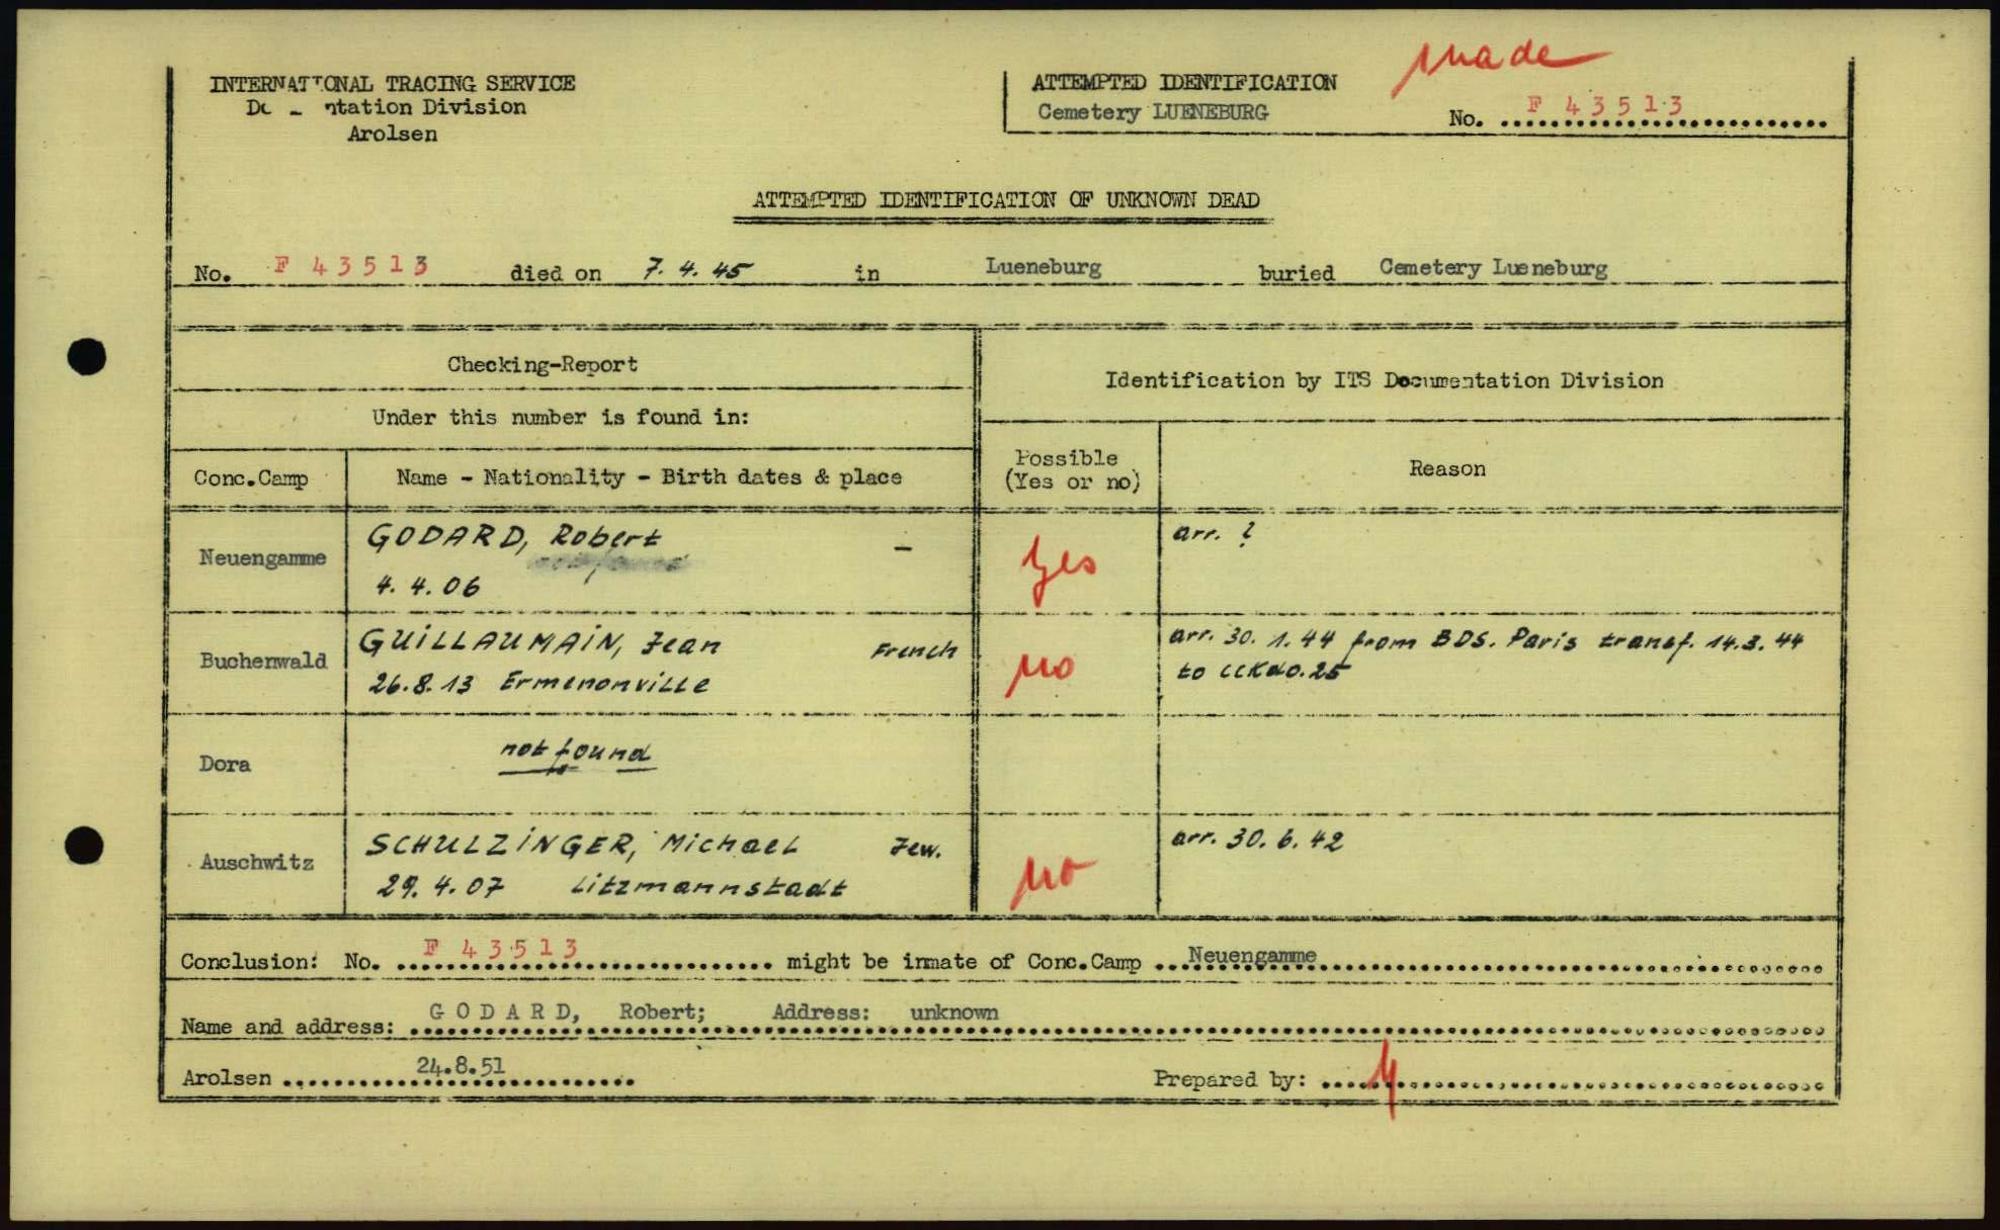 made
INTERNATIONAL TRACING SERVICE
ntation Division
Arolsen
ATTEMPTED IDENTIFICATION
Cemetery LUENEBURG
No. F 43513
ATTEMPTED IDENTIFICATION OF UNKNOWN DEAD
No. F 43513 died on 7.4.45 in Lueneburg buried Cemetery Lueneburg
Checking-Report
Identification by ITS Documentation Division
Under this number is found in:
Conc.Camp
Name - Nationality - Birth dates & place
Possible
(Yes or no)
Reason
Neuengamme
GODARD, Robert -
4.4.06
Yes
arr. ?
Buchenwald
GUILLAUMAIN, Jean French
26.8.13 Ermenonville
no
arr. 30.1.44 from BDS. Paris transf. 14.3.44
to CCKdo.25
Dora
not found
Auschwitz
SCHULZINGER, Michael Jew.
29.4.07 Litzmannstadt
no
arr. 30.6.42
Conclusion: No. F 43513 might be inmate of Conc.Camp Neuengamme
Name and address: GODARD, Robert; Address: unknown
Arolsen 24.8.51
Prepared by: